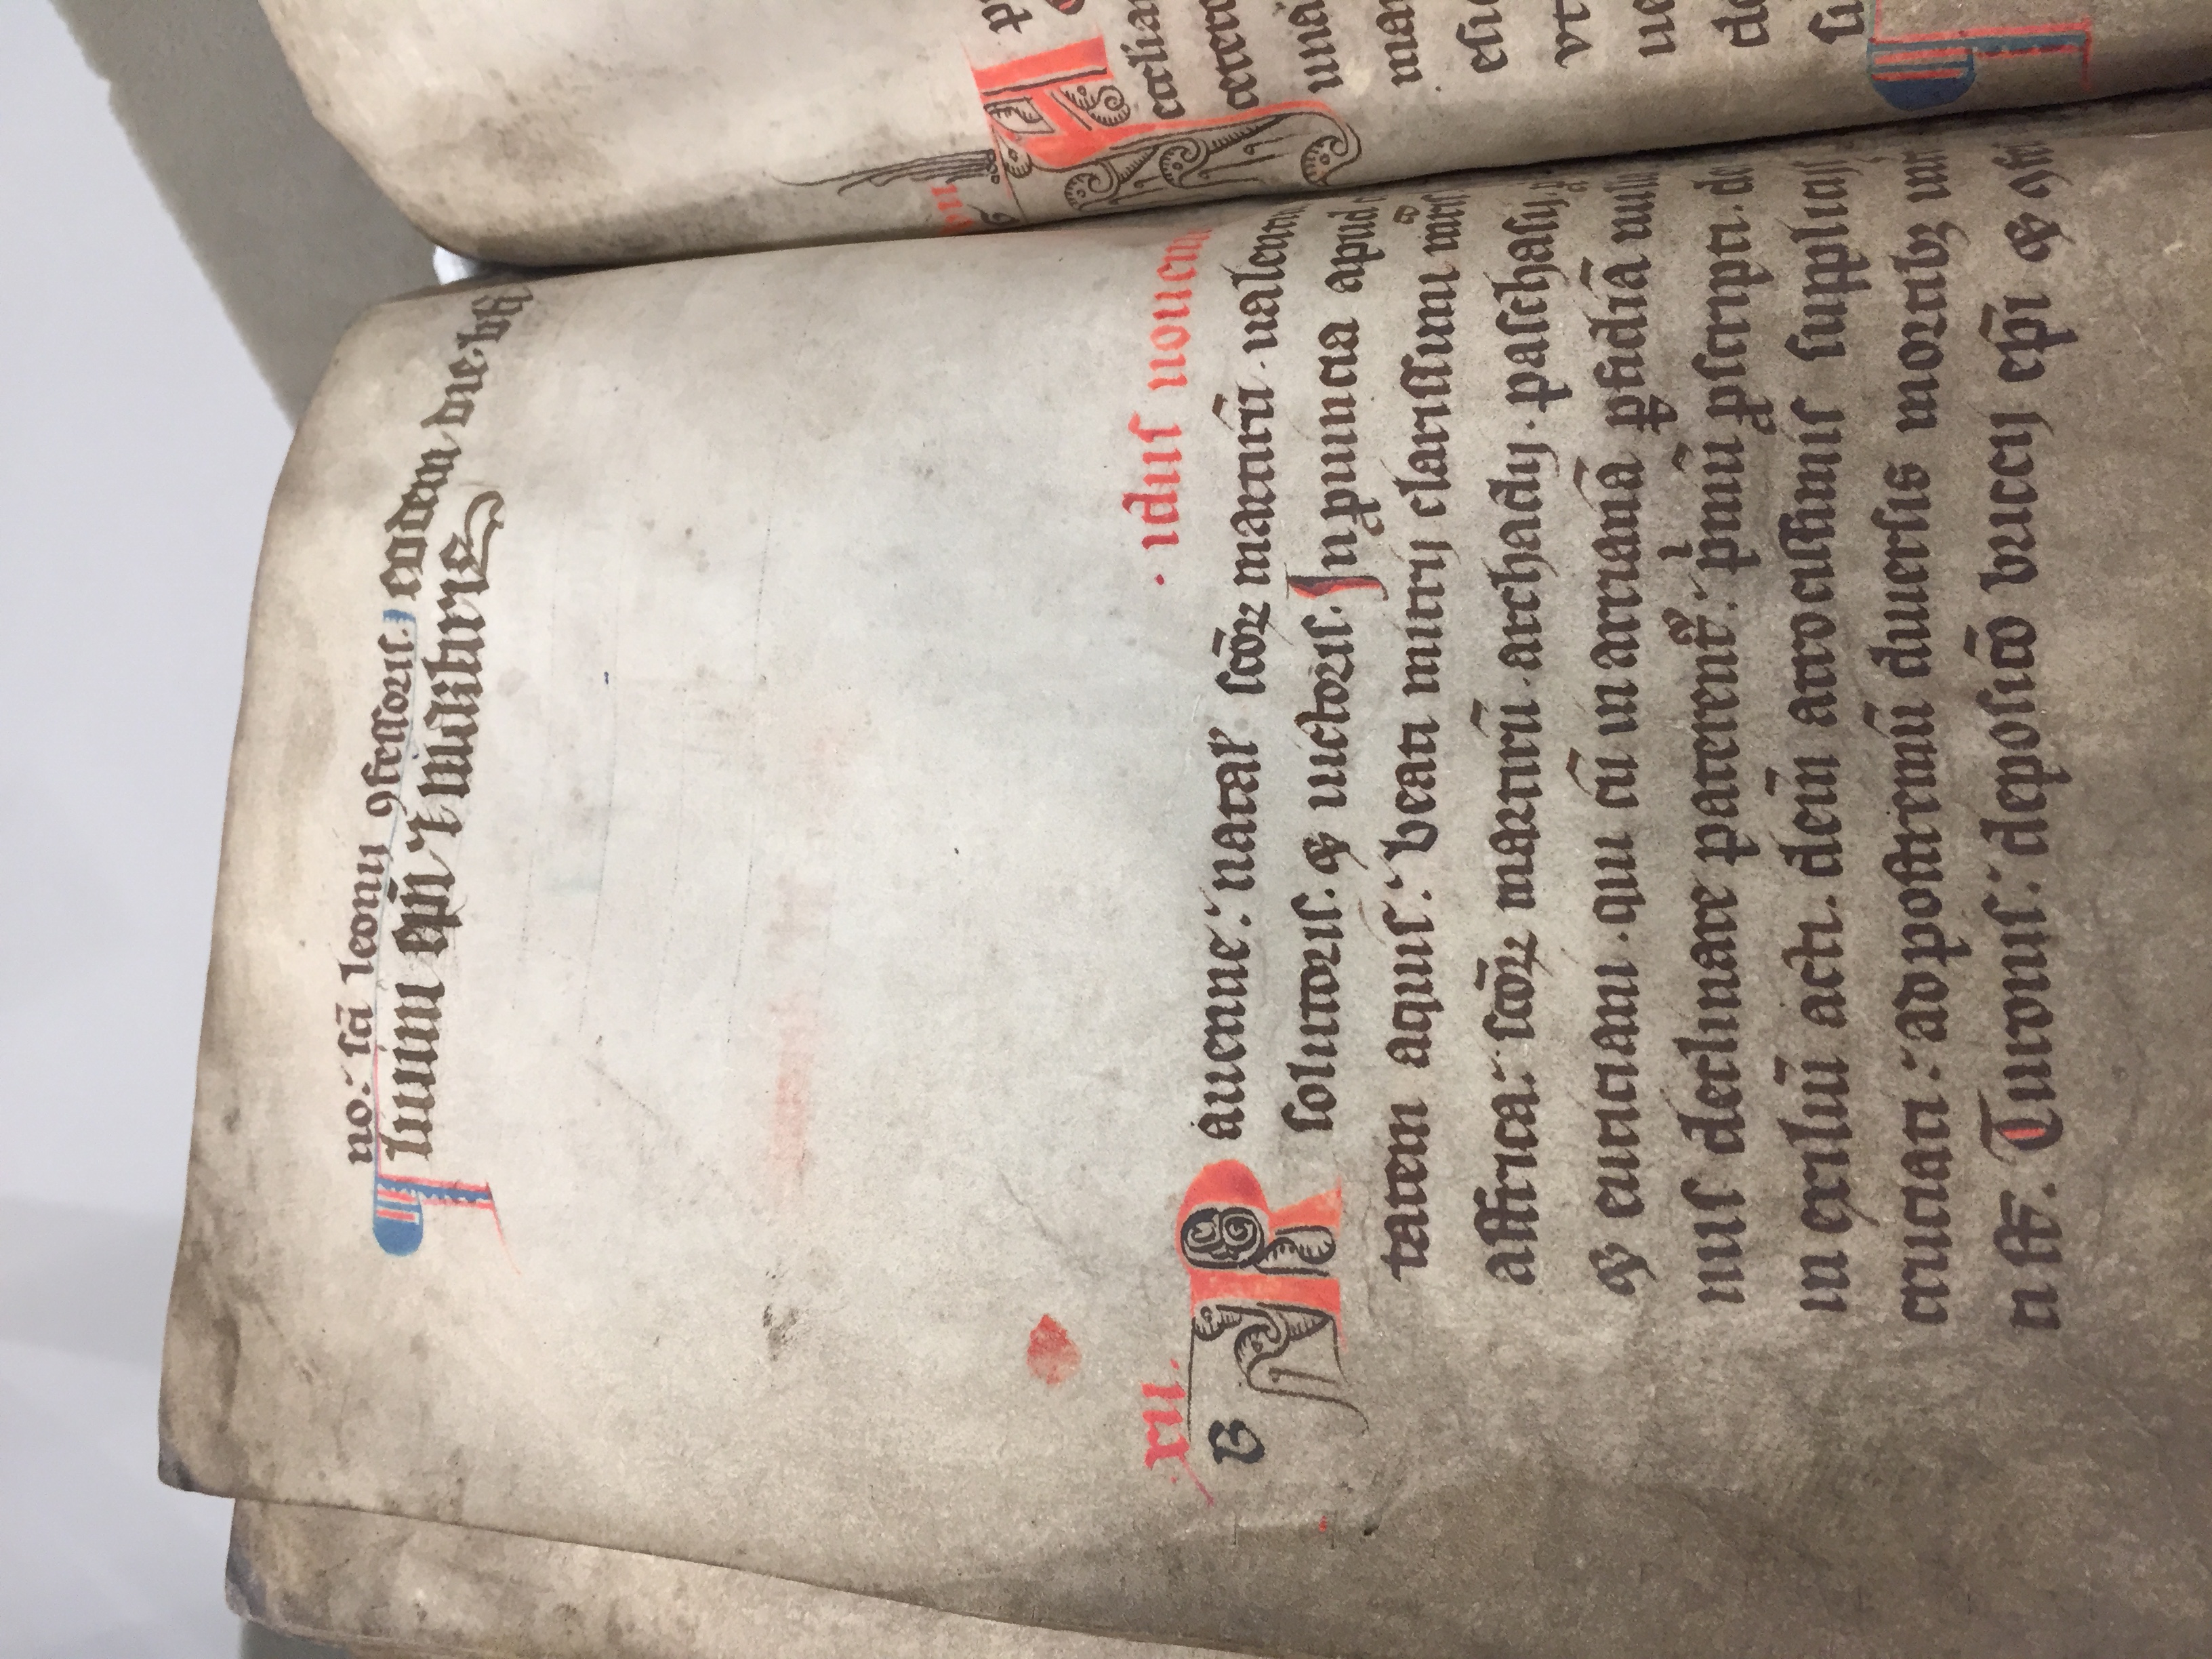 no: sci̅ leonij ꝯfessoris. eodem die bti̅
liuini ep̅i ⁊ martiris
xii. · idus nouem
G Rauenne: natal' sco̅ꝝ martiru̅ · ualenti
solutoris. ⁊ uictoris. In ꝓuincia apud
tatem aquis: beati mitrij clarissimi mr̅is
affrica: sco̅ꝝ martiru̅ · archadij · paschasij
⁊ euticiani · qui cu̅ in arriana̅ ꝑfidia̅
nus declinare paterent᷑: pͥmu̅ ꝓscripti. de
in exiliu̅ acti. dein̅ atrocissimis supplicijs
cruciati: ad postremu̅ diuersis mortibꝫ int
ti st̅. Turonis: deposico̅ briccij ep̅i ⁊ ꝯfes
vii
A p
eccl'ia
cetero
una
mar
esi
vt
ue
de
si